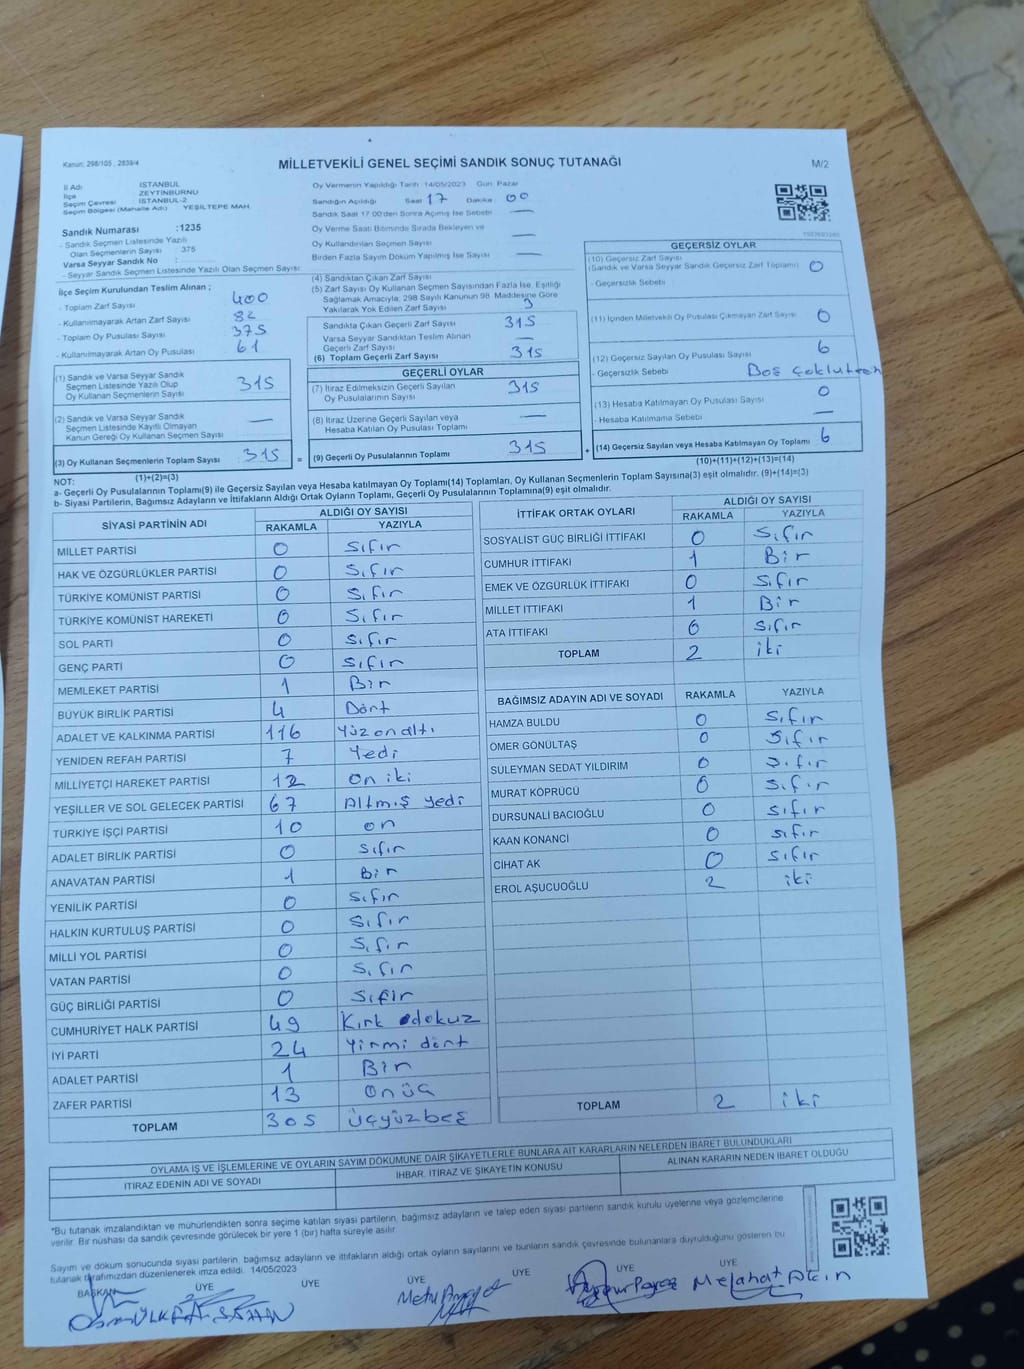 Kanun: 298/105 , 2839/4
MİLLETVEKİLİ GENEL SEÇİMİ SANDIK SONUÇ TUTANAĞI
M/2
İl Adı ISTANBUL
İlçe ZEYTİNBURNU
Seçim Çevresi : İSTANBUL-2
Seçim Bölgesi (Mahalle Adı) YEŞİLTEPE MAH.
Sandık Numarası :1235
- Sandık Seçmen Listesinde Yazılı
Olan Seçmenlerin Sayısı : 375
Varsa Seyyar Sandık No :
- Seyyar Sandık Seçmen Listesinde Yazılı Olan Seçmen Sayısı:
Oy Vermenin Yapıldığı Tarih 14/05/2023 Gün Pazar
Sandığın Açıldığı Saat 17 Dakika 00
Sandık Saat 17.00'den Sonra Açılmış İse Sebebi —
Oy Verme Saati Bitiminde Sırada Bekleyen ve
Oy Kullandırılan Seçmen Sayısı —
Birden Fazla Sayım Döküm Yapılmış İse Sayısı —
İlçe Seçim Kurulundan Teslim Alınan ;
- Toplam Zarf Sayısı 400
- Kullanılmayarak Artan Zarf Sayısı 82
- Toplam Oy Pusulası Sayısı 375
- Kullanılmayarak Artan Oy Pusulası 61
(1) Sandık ve Varsa Seyyar Sandık
Seçmen Listesinde Yazılı Olup
Oy Kullanan Seçmenlerin Sayısı 315
(2) Sandık ve Varsa Seyyar Sandık
Seçmen Listesinde Kayıtlı Olmayan
Kanun Gereği Oy Kullanan Seçmen Sayısı —
(3) Oy Kullanan Seçmenlerin Toplam Sayısı 315 =
(1)+(2)=(3)
(4) Sandıktan Çıkan Zarf Sayısı
(5) Zarf Sayısı Oy Kullanan Seçmen Sayısından Fazla İse, Eşitliği
Sağlamak Amacıyla, 298 Sayılı Kanunun 98. Maddesine Göre
Yakılarak Yok Edilen Zarf Sayısı 3
Sandıkta Çıkan Geçerli Zarf Sayısı 315
Varsa Seyyar Sandıktan Teslim Alınan
Geçerli Zarf Sayısı —
(6) Toplam Geçerli Zarf Sayısı 315
GEÇERLİ OYLAR
(7) İtiraz Edilmeksizin Geçerli Sayılan
Oy Pusulalarının Sayısı 315
(8) İtiraz Üzerine Geçerli Sayılan veya
Hesaba Katılan Oy Pusulası Toplamı —
(9) Geçerli Oy Pusulalarının Toplamı 315 +
GEÇERSİZ OYLAR
(10) Geçersiz Zarf Sayısı
(Sandık ve Varsa Seyyar Sandık Geçersiz Zarf Toplamı) 0
- Geçersizlik Sebebi
(11) İçinden Milletvekili Oy Pusulası Çıkmayan Zarf Sayısı 0
(12) Geçersiz Sayılan Oy Pusulası Sayısı 6
- Geçersizlik Sebebi Boş
(13) Hesaba Katılmayan Oy Pusulası Sayısı 0
- Hesaba Katılmama Sebebi —
(14) Geçersiz Sayılan veya Hesaba Katılmayan Oy Toplamı 6
(10)+(11)+(12)+(13)=(14)
NOT:
a- Geçerli Oy Pusulalarının Toplamı(9) ile Geçersiz Sayılan veya Hesaba katılmayan Oy Toplamı(14) Toplamları, Oy Kullanan Seçmenlerin Toplam Sayısına(3) eşit olmalıdır. (9)+(14)=(3)
b- Siyasi Partilerin, Bağımsız Adayların ve İttifakların Aldığı Ortak Oyların Toplamı, Geçerli Oy Pusulalarının Toplamına(9) eşit olmalıdır.
SİYASİ PARTİNİN ADI ALDIĞI OY SAYISI
RAKAMLA YAZIYLA
MİLLET PARTİSİ 0 Sıfır
HAK VE ÖZGÜRLÜKLER PARTİSİ 0 Sıfır
TÜRKİYE KOMÜNİST PARTİSİ 0 Sıfır
TÜRKİYE KOMÜNİST HAREKETİ 0 Sıfır
SOL PARTİ 0 Sıfır
GENÇ PARTİ 0 Sıfır
MEMLEKET PARTİSİ 1 Bir
BÜYÜK BİRLİK PARTİSİ 4 Dört
ADALET VE KALKINMA PARTİSİ 116 Yüzonaltı
YENİDEN REFAH PARTİSİ 7 Yedi
MİLLİYETÇİ HAREKET PARTİSİ 12 on iki
YEŞİLLER VE SOL GELECEK PARTİSİ 67 Altmış yedi
TÜRKİYE İŞÇİ PARTİSİ 10 on
ADALET BİRLİK PARTİSİ 0 Sıfır
ANAVATAN PARTİSİ 1 Bir
YENİLİK PARTİSİ 0 Sıfır
HALKIN KURTULUŞ PARTİSİ 0 Sıfır
MİLLİ YOL PARTİSİ 0 Sıfır
VATAN PARTİSİ 0 Sıfır
GÜÇ BİRLİĞİ PARTİSİ 0 Sıfır
CUMHURİYET HALK PARTİSİ 49 Kırk dokuz
İYİ PARTİ 24 Yirmi dört
ADALET PARTİSİ 1 Bir
ZAFER PARTİSİ 13 Onüç
TOPLAM 305 üçyüzbeş
İTTİFAK ORTAK OYLARI ALDIĞI OY SAYISI
RAKAMLA YAZIYLA
SOSYALİST GÜÇ BİRLİĞİ İTTİFAKI 0 Sıfır
CUMHUR İTTİFAKI 1 Bir
EMEK VE ÖZGÜRLÜK İTTİFAKI 0 Sıfır
MİLLET İTTİFAKI 1 Bir
ATA İTTİFAKI 0 Sıfır
TOPLAM 2 iki
BAĞIMSIZ ADAYIN ADI VE SOYADI RAKAMLA YAZIYLA
HAMZA BULDU 0 Sıfır
ÖMER GÖNÜLTAŞ 0 Sıfır
SÜLEYMAN SEDAT YILDIRIM 0 Sıfır
MURAT KÖPRÜCÜ 0 Sıfır
DURSUNALİ BACIOĞLU 0 Sıfır
KAAN KONANCİ 0 sıfır
CİHAT AK 0 sıfır
EROL AŞUCUOĞLU 2 iki
TOPLAM 2 iki
OYLAMA İŞ VE İŞLEMLERİNE VE OYLARIN SAYIM DÖKÜMÜNE DAİR ŞİKAYETLERLE BUNLARA AİT KARARLARIN NELERDEN İBARET BULUNDUKLARI
İTİRAZ EDENİN ADI VE SOYADI İHBAR, İTİRAZ VE ŞİKAYETİN KONUSU ALINAN KARARIN NEDEN İBARET OLDUĞU
*Bu tutanak imzalandıktan ve mühürlendikten sonra seçime katılan siyasi partilerin, bağımsız adayların ve talep eden siyasi partilerin sandık kurulu üyelerine veya gözlemcilerine
verilir. Bir nüshası da sandık çevresinde görülecek bir yere 1 (bir) hafta süreyle asılır.
Sayım ve döküm sonucunda siyasi partilerin, bağımsız adayların ve ittifakların aldığı ortak oyların sayılarını ve bunların sandık çevresinde bulunanlara duyrulduğunu gösteren bu
tutanak tarafımızdan düzenlenerek imza edildi. 14/05/2023
BAŞKAN ÜYE ÜYE ÜYE ÜYE ÜYE ÜYE
Melahat Akın